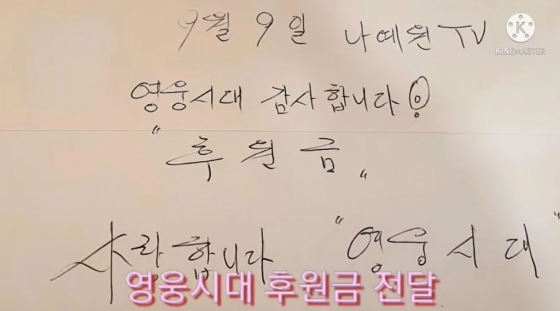 9월 9일 나예원TV
KINEMASTER
영웅시대 감사합니다!
"후원금"
사랑합니다 "영웅시대"
영웅시대 후원금 전달